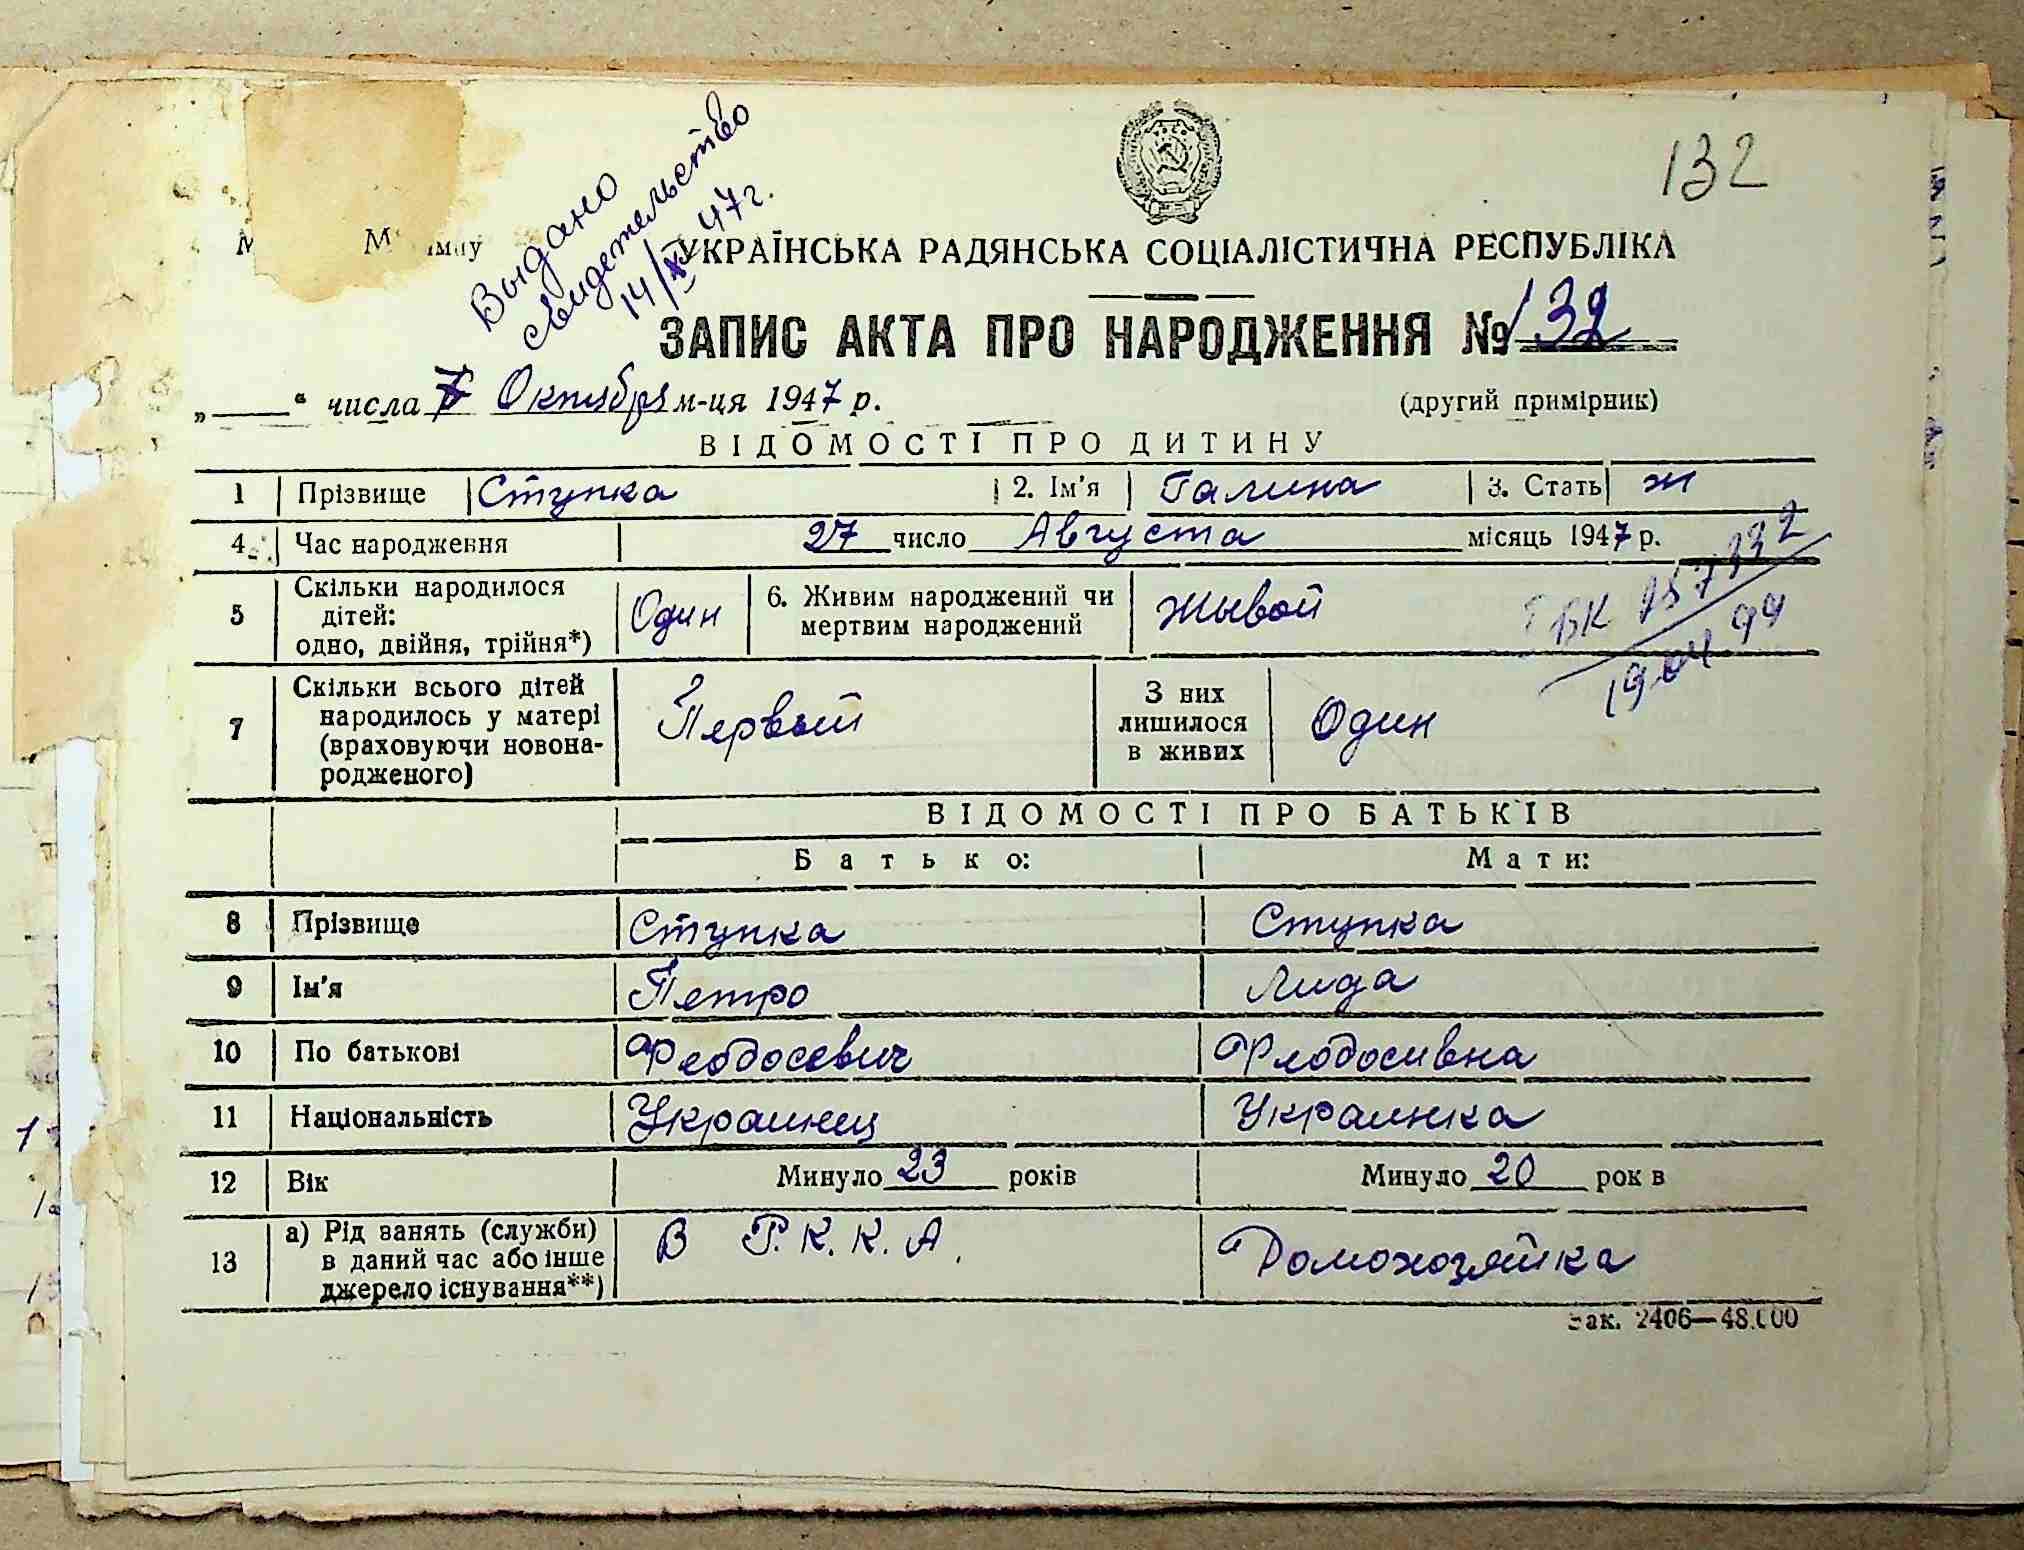 132
Выдано
свидетельство
14/XI 47 г.
УКРАЇНСЬКА РАДЯНСЬКА СОЦІАЛІСТИЧНА РЕСПУБЛІКА
ЗАПИС АКТА ПРО НАРОДЖЕННЯ № 132
„ “ числа 7 Октября м-ця 1947 р. (другий примірник)
ВІДОМОСТІ ПРО ДИТИНУ
1 Прізвище Ступка 2. Ім'я Галина 3. Стать ж
4 Час народження 27 число Августа місяць 1947 р.
5 Скільки народилося дітей: одно, двійня, трійня*) Один 6. Живим народжений чи мертвим народжений Жывой
19 04 99
7 Скільки всього дітей народилось у матері (враховуючи новона-родженого) Первый З них лишилося в живих Один
ВІДОМОСТІ ПРО БАТЬКІВ
Батько: Мати:
8 Прізвище Ступка Ступка
9 Ім'я Петро Лида
10 По батькові Феодосевич Феодосивна
11 Національність Украинец Украинка
12 Вік Минуло 23 років Минуло 20 рок в
13 а) Рід занять (служби) в даний час або інше джерело існування**) В Р.К.К.А. Домохозяйка
Зак. 2406—48.000